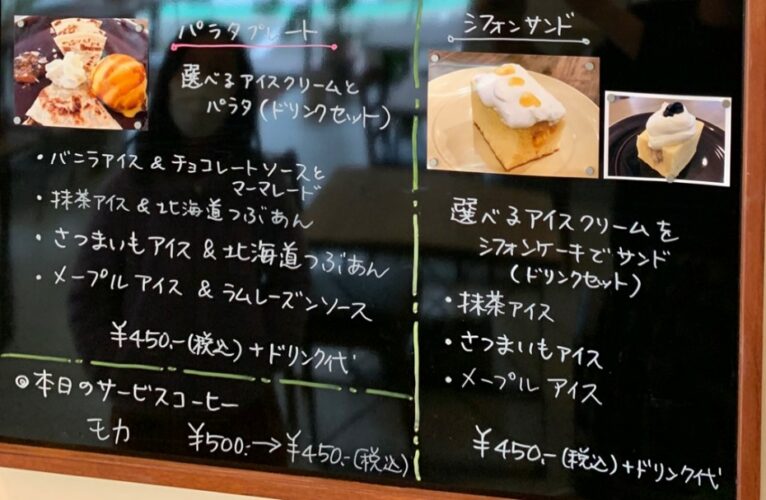 パラタプレート
選べるアイスクリームと
パラタ(ドリンクセット)
・バニラアイス & チョコレートソースと
マーマレード
・抹茶アイス & 北海道つぶあん
・さつまいもアイス & 北海道つぶあん
・メープルアイス & ラムレーズンソース
¥450.-(税込)+ドリンク代
◎本日のサービスコーヒー
モカ ¥500.-→¥450.-(税込)
シフォンサンド
選べるアイスクリームを
シフォンケーキでサンド
(ドリンクセット)
・抹茶アイス
・さつまいもアイス
・メープルアイス
¥450.-(税込)+ドリンク代